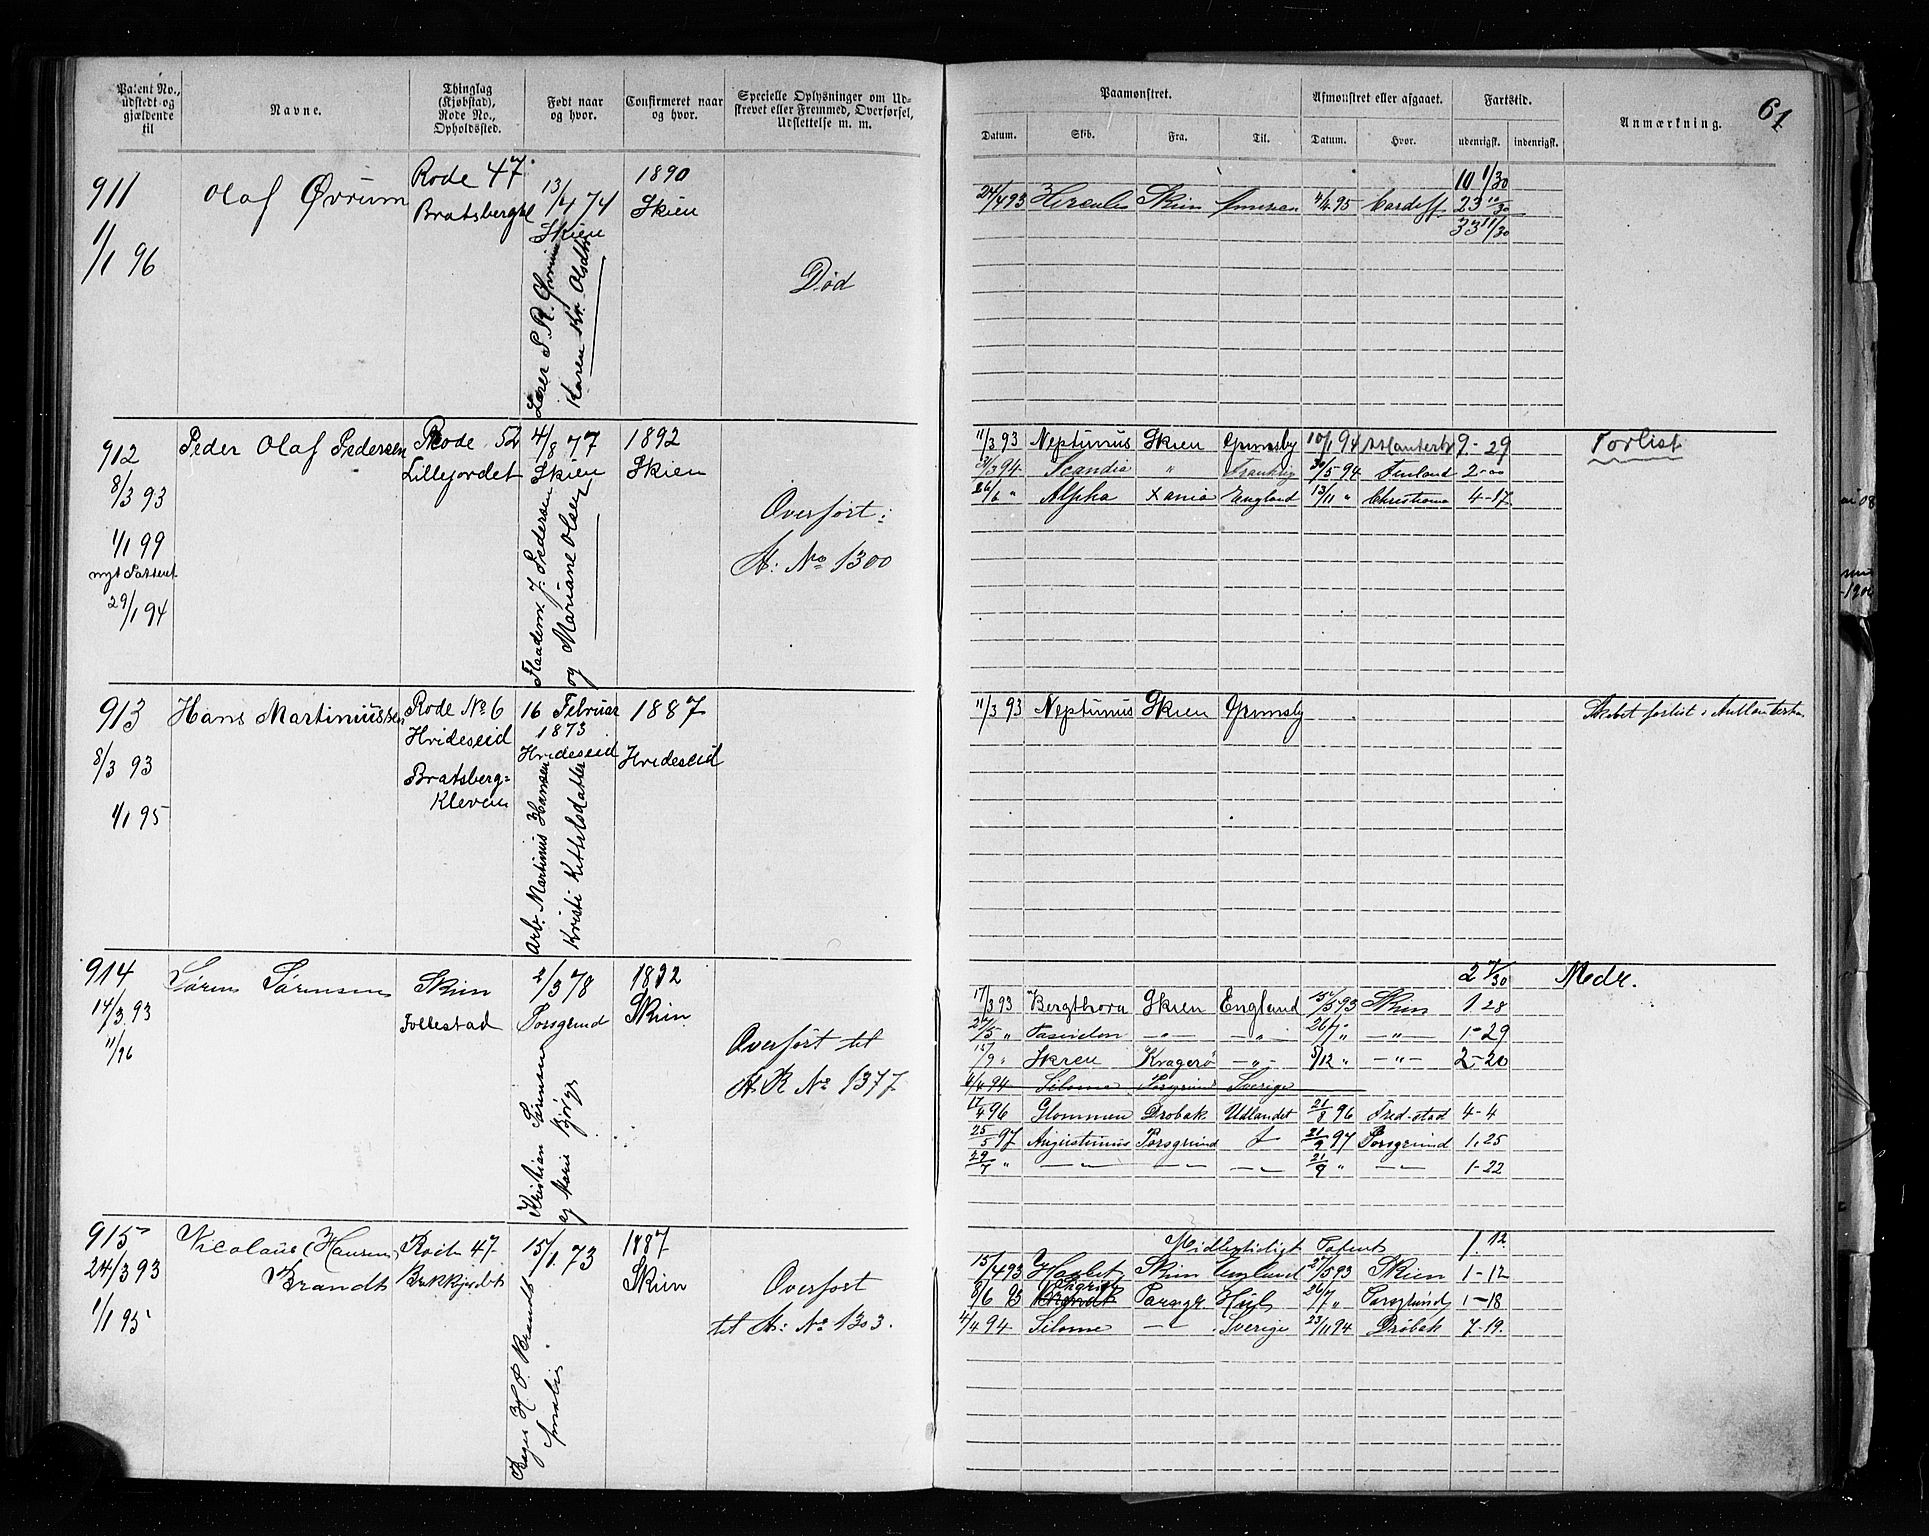 Patent No., udstedt og gjældende til
Navne.
Thinglag (Kjøbstad), Rode No., Opholdssted.
Født naar og hvor.
Confirmeret naar og hvor.
Specielle Oplysninger om Udskrevet eller Fremmed, Overførsel, Udslettelse m. m.
Paamønstret.
Afmønstret eller afgaaet.
Fartstid.
Anmærkning.
61
Datum.
Skib.
Fra.
Til.
Datum.
Hvor.
udenrigsk.
indenrigsk.
911
1/1 96
Olaf Øvrum
Rode 47.
Bratsbergkl
13/4 74
Skien
Lærer P. R. Øvrum
Karen Kr. Olsdtr
1890
Skien
Død
10 1/30
24/4 93 Hercules Skien 4/4 95 Cardiff 23 10/30
33 11/30
912
8/3 93
1/1 99
nyt Patent
29/1 94
Peder Olaf Pedersen
Rode 52
Lillejordet
4/8 77
Skien
Flaadem. J. Pedersen
og Mariane Olsen
1892
Skien
Overført:
A: No 1300
11/3 93 Neptunus Skien Grimsby 10/1 94 9-29
Forlist
31/3 94 Scandia " Frankrig 30/5 94 Finland 2-00
26/6 " Alpha Xania England 13/11 " Christiania 4-17
913
8/3 93
1/1 95
Hans Martiniussen
Rode No 6
Hvideseid
Bratsberg=
Kleven
16 Februar
1873
Hvideseid
Arb. Martinus Hansen
Kristi Kittilsdatter
1887
Hvideseid
11/3 93 Neptunus Skien Grimsby
Skibet forlist i
914
14/3 93
1/1 96
Søren Sørensen
Skien
Follestad
2/3 78
Porsgrund
Kristian Sørensen
og Marie Bjørge
1892
Skien
Overført til
A. R No 1377
2 7/30
Medr.
17/3 93 Bergthora Skien England 15/5 93 Skien 1-28
27/5 " Poseidon -"- -"- 26/7 " -"- 1-29
15/9 " Skien Kragerø -"- 5/12 " -"- 2-20
4/4 94 Silome Porsgrund Sverige
17/4 96 Glommen Drøbak Udlandet 21/8 96 Fred-stad 4-4
25/5 97 Augustinus Porsgrund 21/9 97 Porsgrund 1.25
29/7 " -"- -"- -"- 21/9 " -"- 1-22
915
24/3 93
1/1 95
Nicolaus (Hansen)
Brandt
Rode 47-
Bakkejordet
15/1.73
Bager H. P. Brandt
1887
Skien
Overført
til A: No 1303.
Midlertidigt Patent 1.12
15/4 93 Haabet Skien England 27/5 93 Skien 1-12
8/6 93 Porsgr. Hull 26/7 " Porsgrund 1-18
4/4 94 Silome -"- Sverige 23/11 94 Drøbak 7-19.